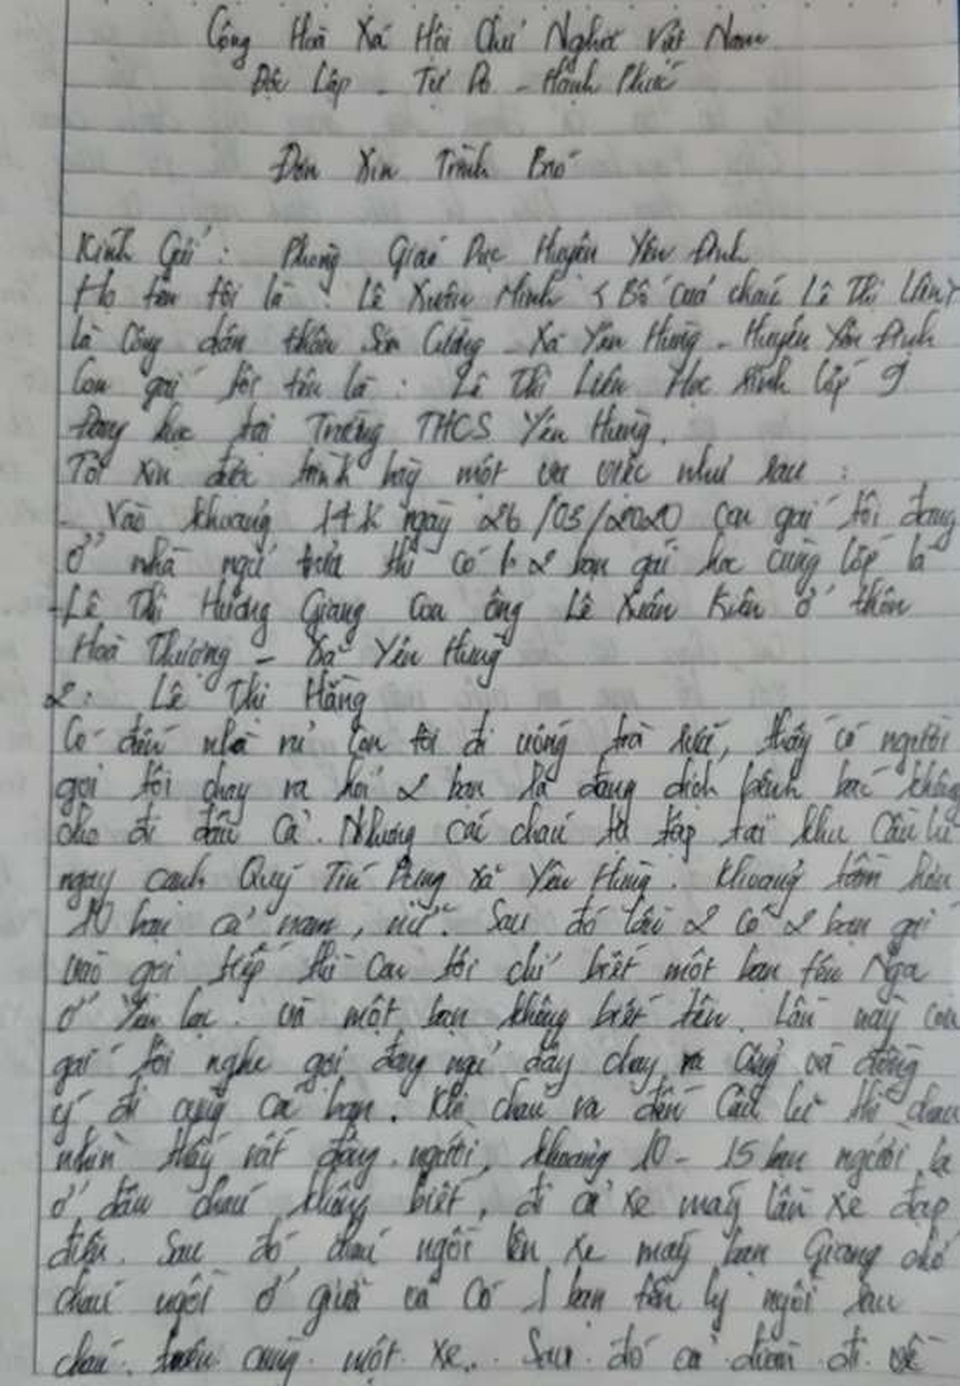 Cộng Hoà Xã Hội Chủ Nghĩa Việt Nam
Độc Lập - Tự Do - Hạnh Phúc
Đơn Xin Trình Báo
Kính Gửi : Phòng Giáo Dục Huyện Yên Định
Họ tên tôi là : Lê Xuân Minh < Bố của cháu Lê Thị Liên >
là công dân thôn Sơn Cường - Xã Yên Hùng - Huyện Yên Định
Con gái tôi tên là : Lê Thị Liên Học sinh lớp 9
đang học tại Trường THCS Yên Hùng.
Tôi xin được trình bày một vụ việc như sau :
- Vào khoảng 14h ngày 26/03/2020 con gái tôi đang
ở nhà ngủ trưa thì có 2 bạn gái học cùng lớp là
- Lê Thị Hương Giang con ông Lê Xuân Kiên ở thôn
Hoà Thượng - Xã Yên Hùng
2: Lê Thị Hằng
Có đến nhà rủ con tôi đi uống trà sữa, thấy có người
gọi tôi chạy ra hỏi 2 bạn là đang dịch bệnh bác không
cho đi đâu cả. Nhưng các cháu tụ tập tại khu Cầu
ngay cạnh Quỹ Tín Dụng xã Yên Hùng. Khoảng tầm hơn
10 bạn cả nam, nữ. Sau đó lần 2 có 2 bạn gái
vào gọi tiếp thì con tôi chỉ biết một bạn tên Nga
ở Yên Lạc. và một bạn không biết tên. Lần này con
gái tôi nghe gọi đang ngủ dậy chạy ra cổng và đồng
ý đi cùng các bạn. Khi cháu ra đến Cầu thì cháu
nhìn thấy rất đông người, khoảng 10 - 15 bạn người lạ
ở đâu cháu không biết, đi cả xe máy lẫn xe đạp
điện. Sau đó cháu ngồi lên xe máy bạn Giang chở
cháu ngồi ở giữa và có 1 bạn tên Ly ngồi sau
cháu. trên cùng một xe. Sau đó cả đám đi về